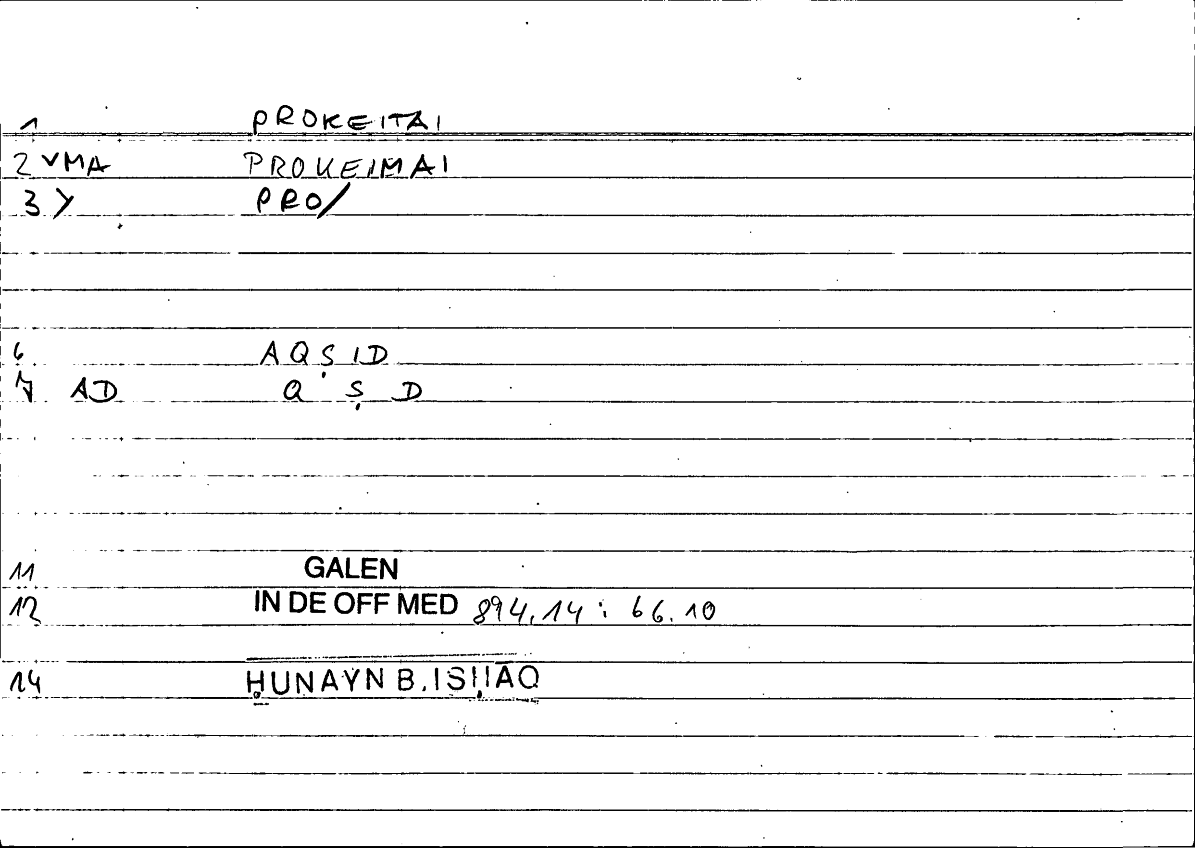 1 PROKEITAI
2 VMA PROKEIMAI
3 Y PRO/
6 AQṢID
7 AD Q Ṣ D
11 GALEN
12 IN DE OFF MED 894,14 : 66.10
14 ḤUNAYN B. ISḤĀQ